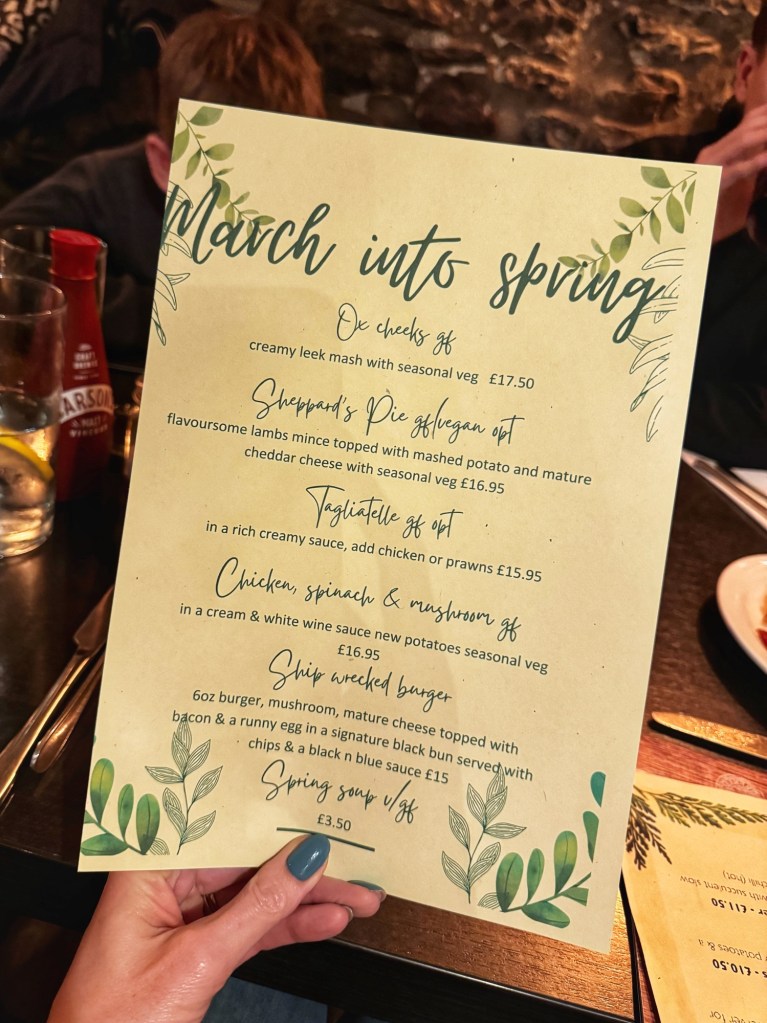 March into spring
Ox cheeks gf
creamy leek mash with seasonal veg £17.50
Sheppard's Pie gf/vegan opt
flavoursome lambs mince topped with mashed potato and mature
cheddar cheese with seasonal veg £16.95
Tagliatelle gf opt
in a rich creamy sauce, add chicken or prawns £15.95
Chicken, spinach & mushroom gf
in a cream & white wine sauce new potatoes seasonal veg
£16.95
Ship wrecked burger
6oz burger, mushroom, mature cheese topped with
bacon & a runny egg in a signature black bun served with
chips & a black n blue sauce £15
Spring soup v/gf
£3.50
ARSON
MALT
VINEGAR
with succulent slow
chilli (hot)
- £11.50
potatoes & a
- £10.50